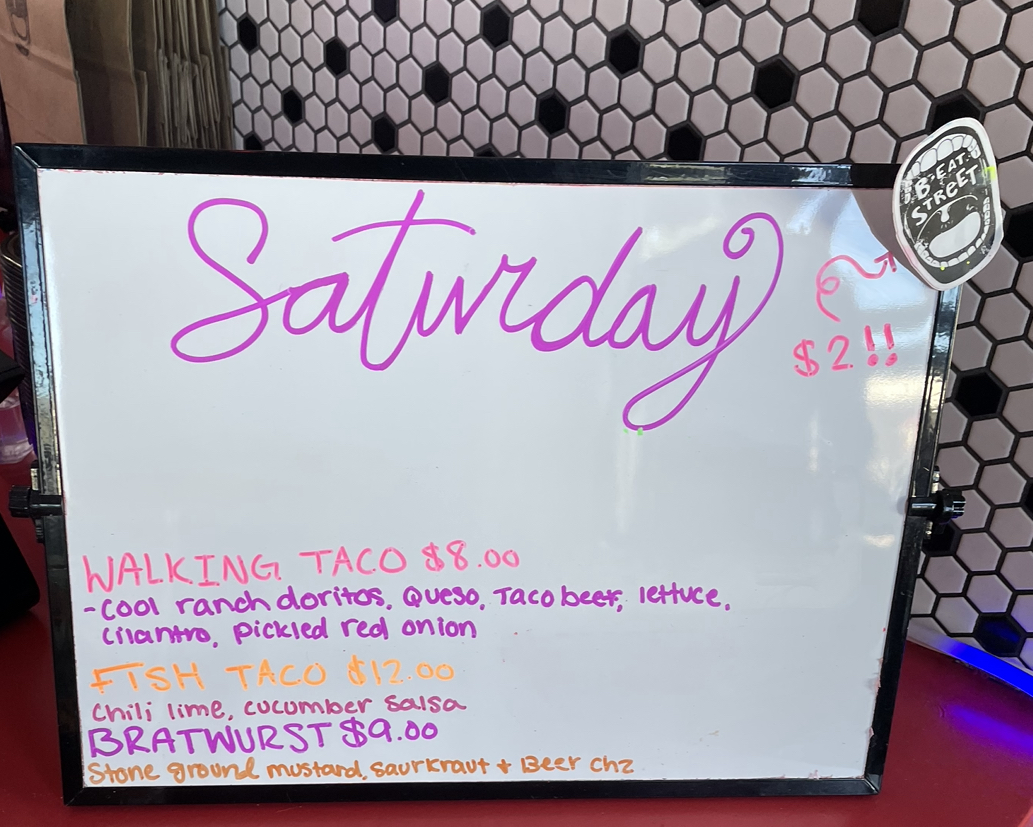 Saturday
B-EAT
STREET
$2!!
WALKING TACO $8.00
-Cool ranch doritos, Queso, Taco beef, lettuce,
cilantro, pickled red onion
FISH TACO $12.00
Chili lime, cucumber salsa
BRATWURST $9.00
Stone ground mustard, saurkraut + Beer chz